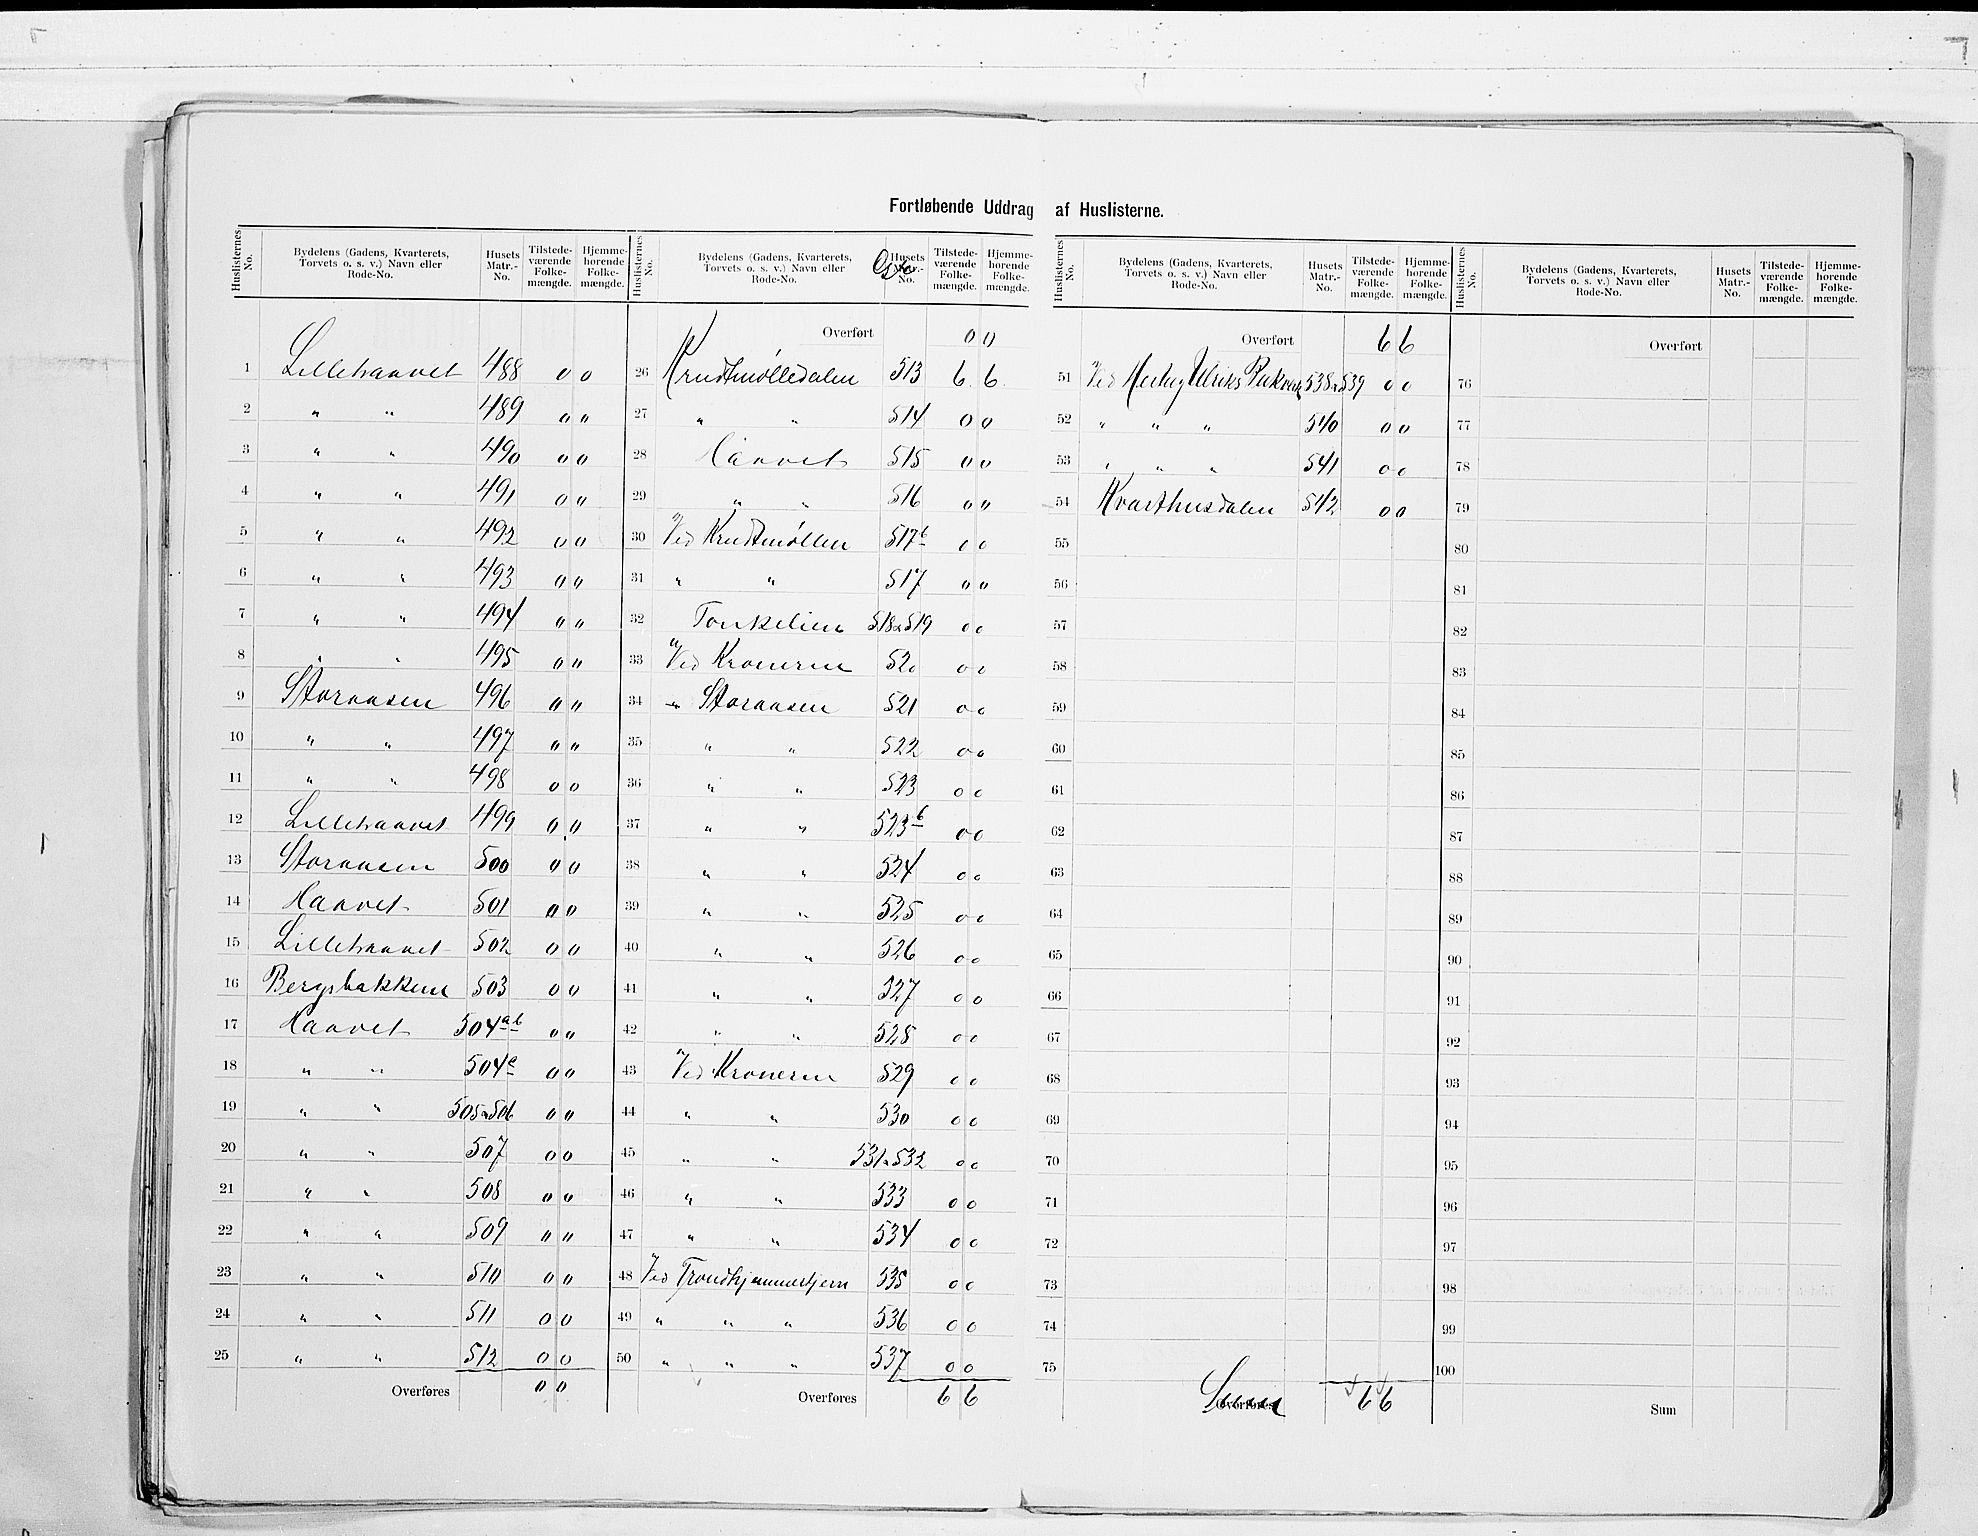 Fortløbende Uddrag af Huslisterne.
Huslisternes No. Bydelens (Gadens, Kvarterets, Torvets o. s. v.) Navn eller Rode-No. Husets Matr.-No. Tilstedeværende Folkemængde. Hjemmehørende Folkemængde.
1 Lillehaavet 488 0 0
2 " " 489 0 0
3 " " 490 0 0
4 " " 491 0 0
5 " " 492 0 0
6 " " 493 0 0
7 " " 494 0 0
8 " " 495 0 0
9 Storaasen 496 0 0
10 " " 497 0 0
11 " " 498 0 0
12 Lillehaavet 499 0 0
13 Storaasen 500 0 0
14 Haavet 501 0 0
15 Lillehaavet 502 0 0
16 Bergsbakken 503 0 0
17 Haavet 504ab 0 0
18 " " 504c 0 0
19 " " 505 & 506 0 0
20 " " 507 0 0
21 " " 508 0 0
22 " " 509 0 0
23 " " 510 0 0
24 " " 511 0 0
25 " " 512 0 0
Overføres 0 0
Huslisternes No. Bydelens (Gadens, Kvarterets, Torvets o. s. v.) Navn eller Rode-No. Husets Matr.-No. Tilstedeværende Folkemængde. Hjemmehørende Folkemængde.
Overført 0 0
26 Krudtmølledalen 513 6 6
27 " " 514 0 0
28 Haavet 515 0 0
29 " " 516 0 0
30 Ved Krudtmøllen 517b 0 0
31 " " 517 0 0
32 Tonkelien 518 & 519 0 0
33 Ved Kronerne 520 0 0
34 " Storaasen 521 0 0
35 " " 522 0 0
36 " " 523 0 0
37 " " 523b 0 0
38 " " 524 0 0
39 " " 525 0 0
40 " " 526 0 0
41 " " 527 0 0
42 " " 528 0 0
43 Ved Kronerne 529 0 0
44 " " 530 0 0
45 " " 531 & 532 0 0
46 " " 533 0 0
47 " " 534 0 0
48 Ved Trondhjemmertjern 535 0 0
49 " " " 536 0 0
50 " " " 537 0 0
Overføres 6 6
Huslisternes No. Bydelens (Gadens, Kvarterets, Torvets o. s. v.) Navn eller Rode-No. Husets Matr.-No. Tilstedeværende Folkemængde. Hjemmehørende Folkemængde.
Overført 6 6
51 Ved Hertug Ulriks Pukværk 538 & 539 0 0
52 " " " 540 0 0
53 " " " 541 0 0
54 Kvasthusdalen 542 0 0
55
56
57
58
59
60
61
62
63
64
65
66
67
68
69
70
71
72
73
74
75
Overføres Sum 6 6
Huslisternes No. Bydelens (Gadens, Kvarterets, Torvets o. s. v.) Navn eller Rode-No. Husets Matr.-No. Tilstedeværende Folkemængde. Hjemmehørende Folkemængde.
Overført
76
77
78
79
80
81
82
83
84
85
86
87
88
89
90
91
92
93
94
95
96
97
98
99
100
Sum